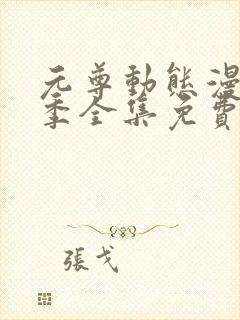 元尊動態漫
季全集免費
張戈